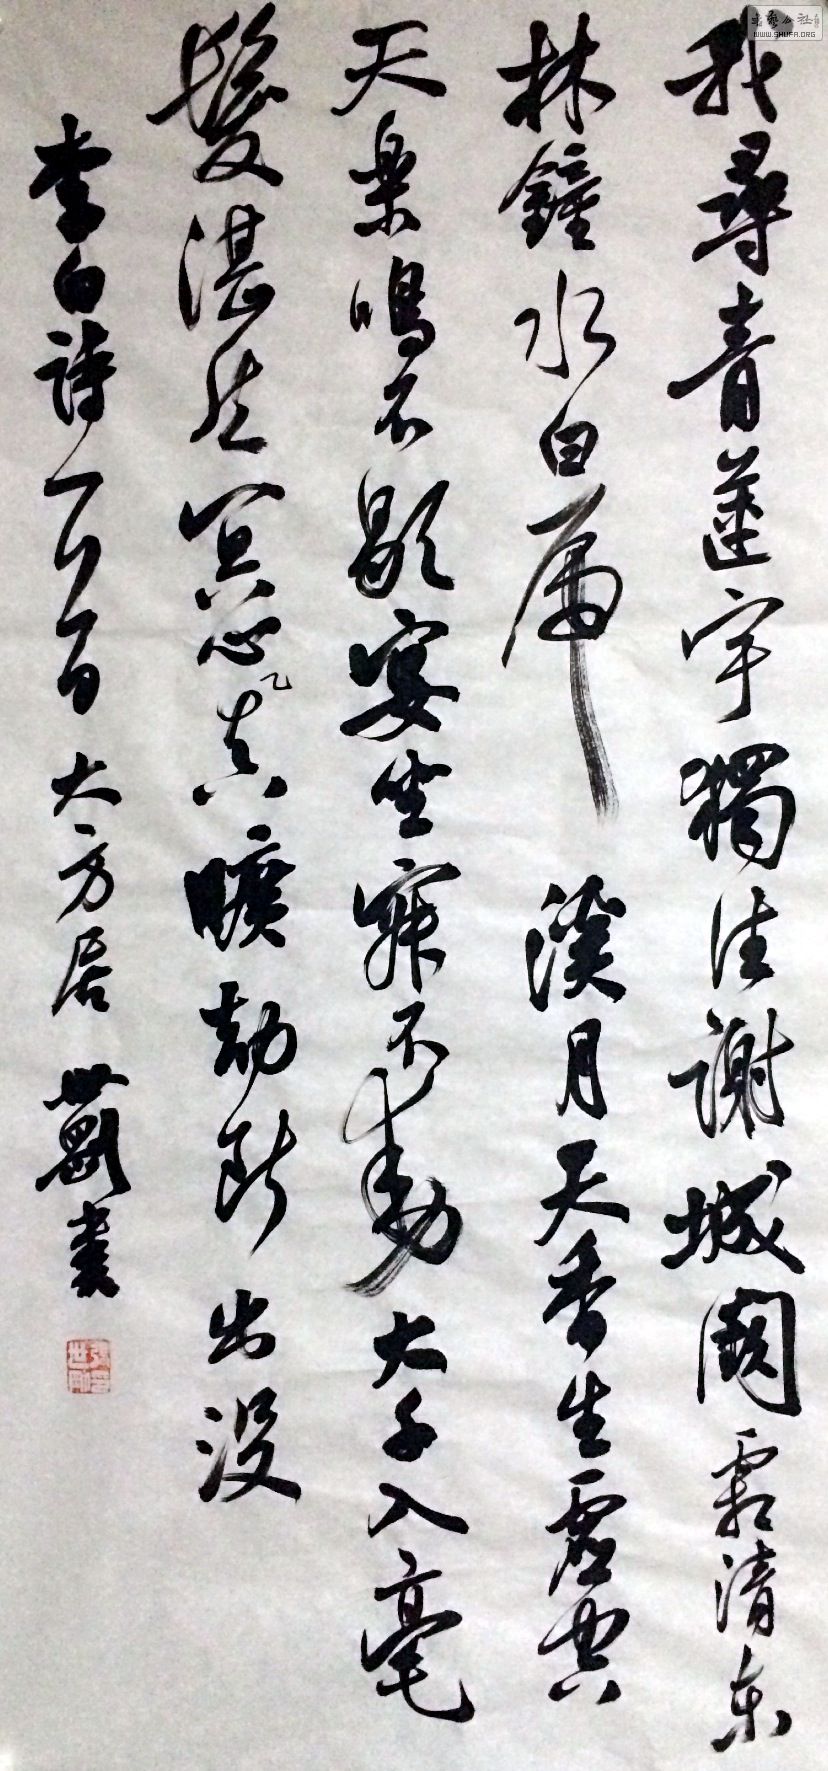 我尋青蓮宇獨往謝城闕霜清東
林鐘水白虎溪月天香生虛空
天樂鳴不歇宴坐寂不動大千入毫
髮湛然冥心真曠劫斷出沒
李白詩一首 大方居 世剛書
書藝公社
WWW.SHUFA.ORG